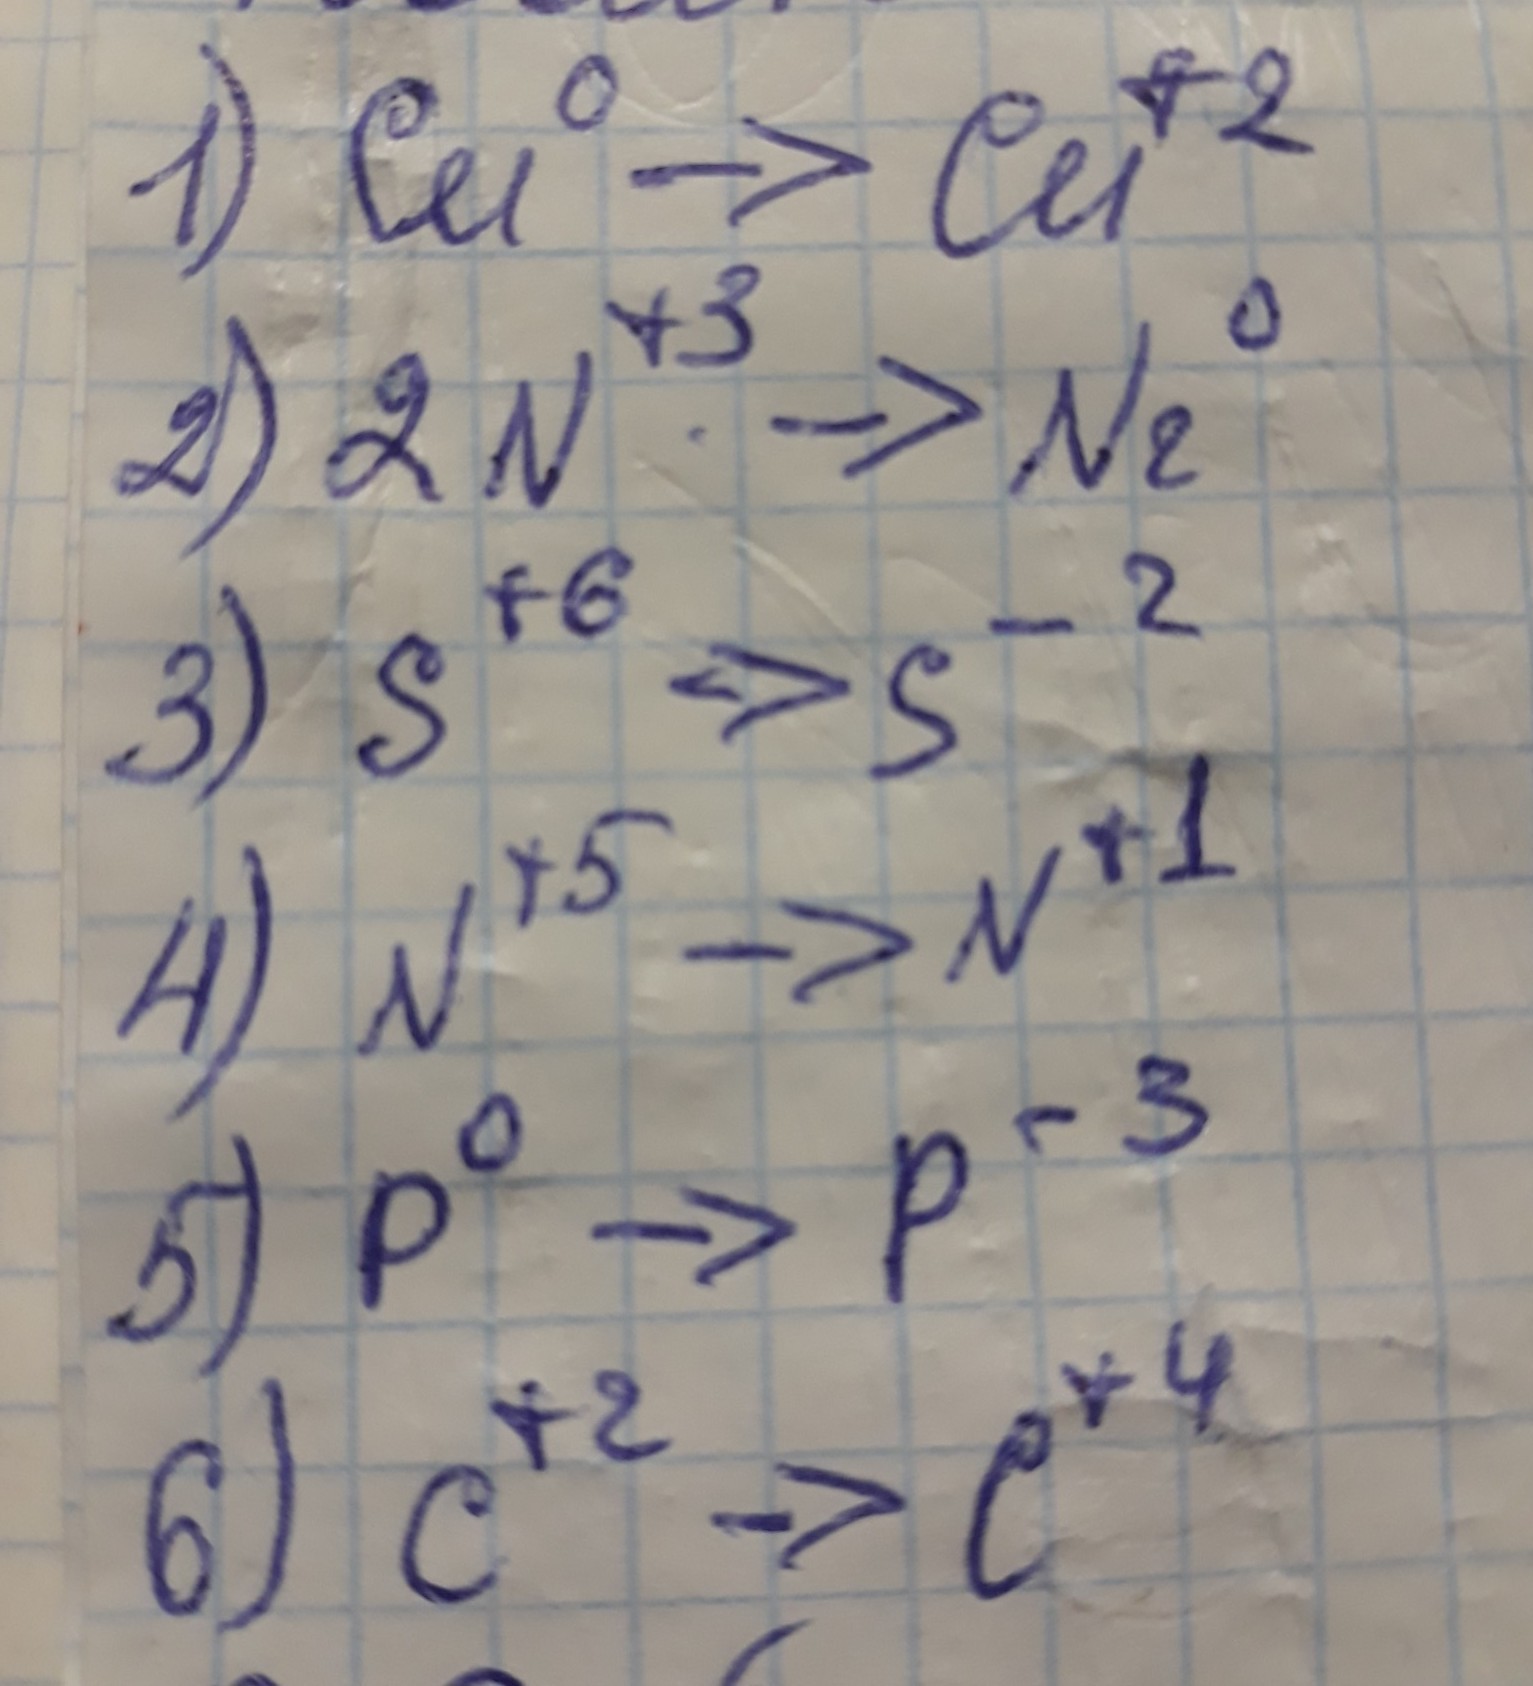 1) Cu⁰ → Cu⁺²
2) 2N⁺³ → N₂⁰
3) S⁺⁶ → S⁻²
4) N⁺⁵ → N⁺¹
5) P⁰ → P⁻³
6) C⁺² → C⁺⁴